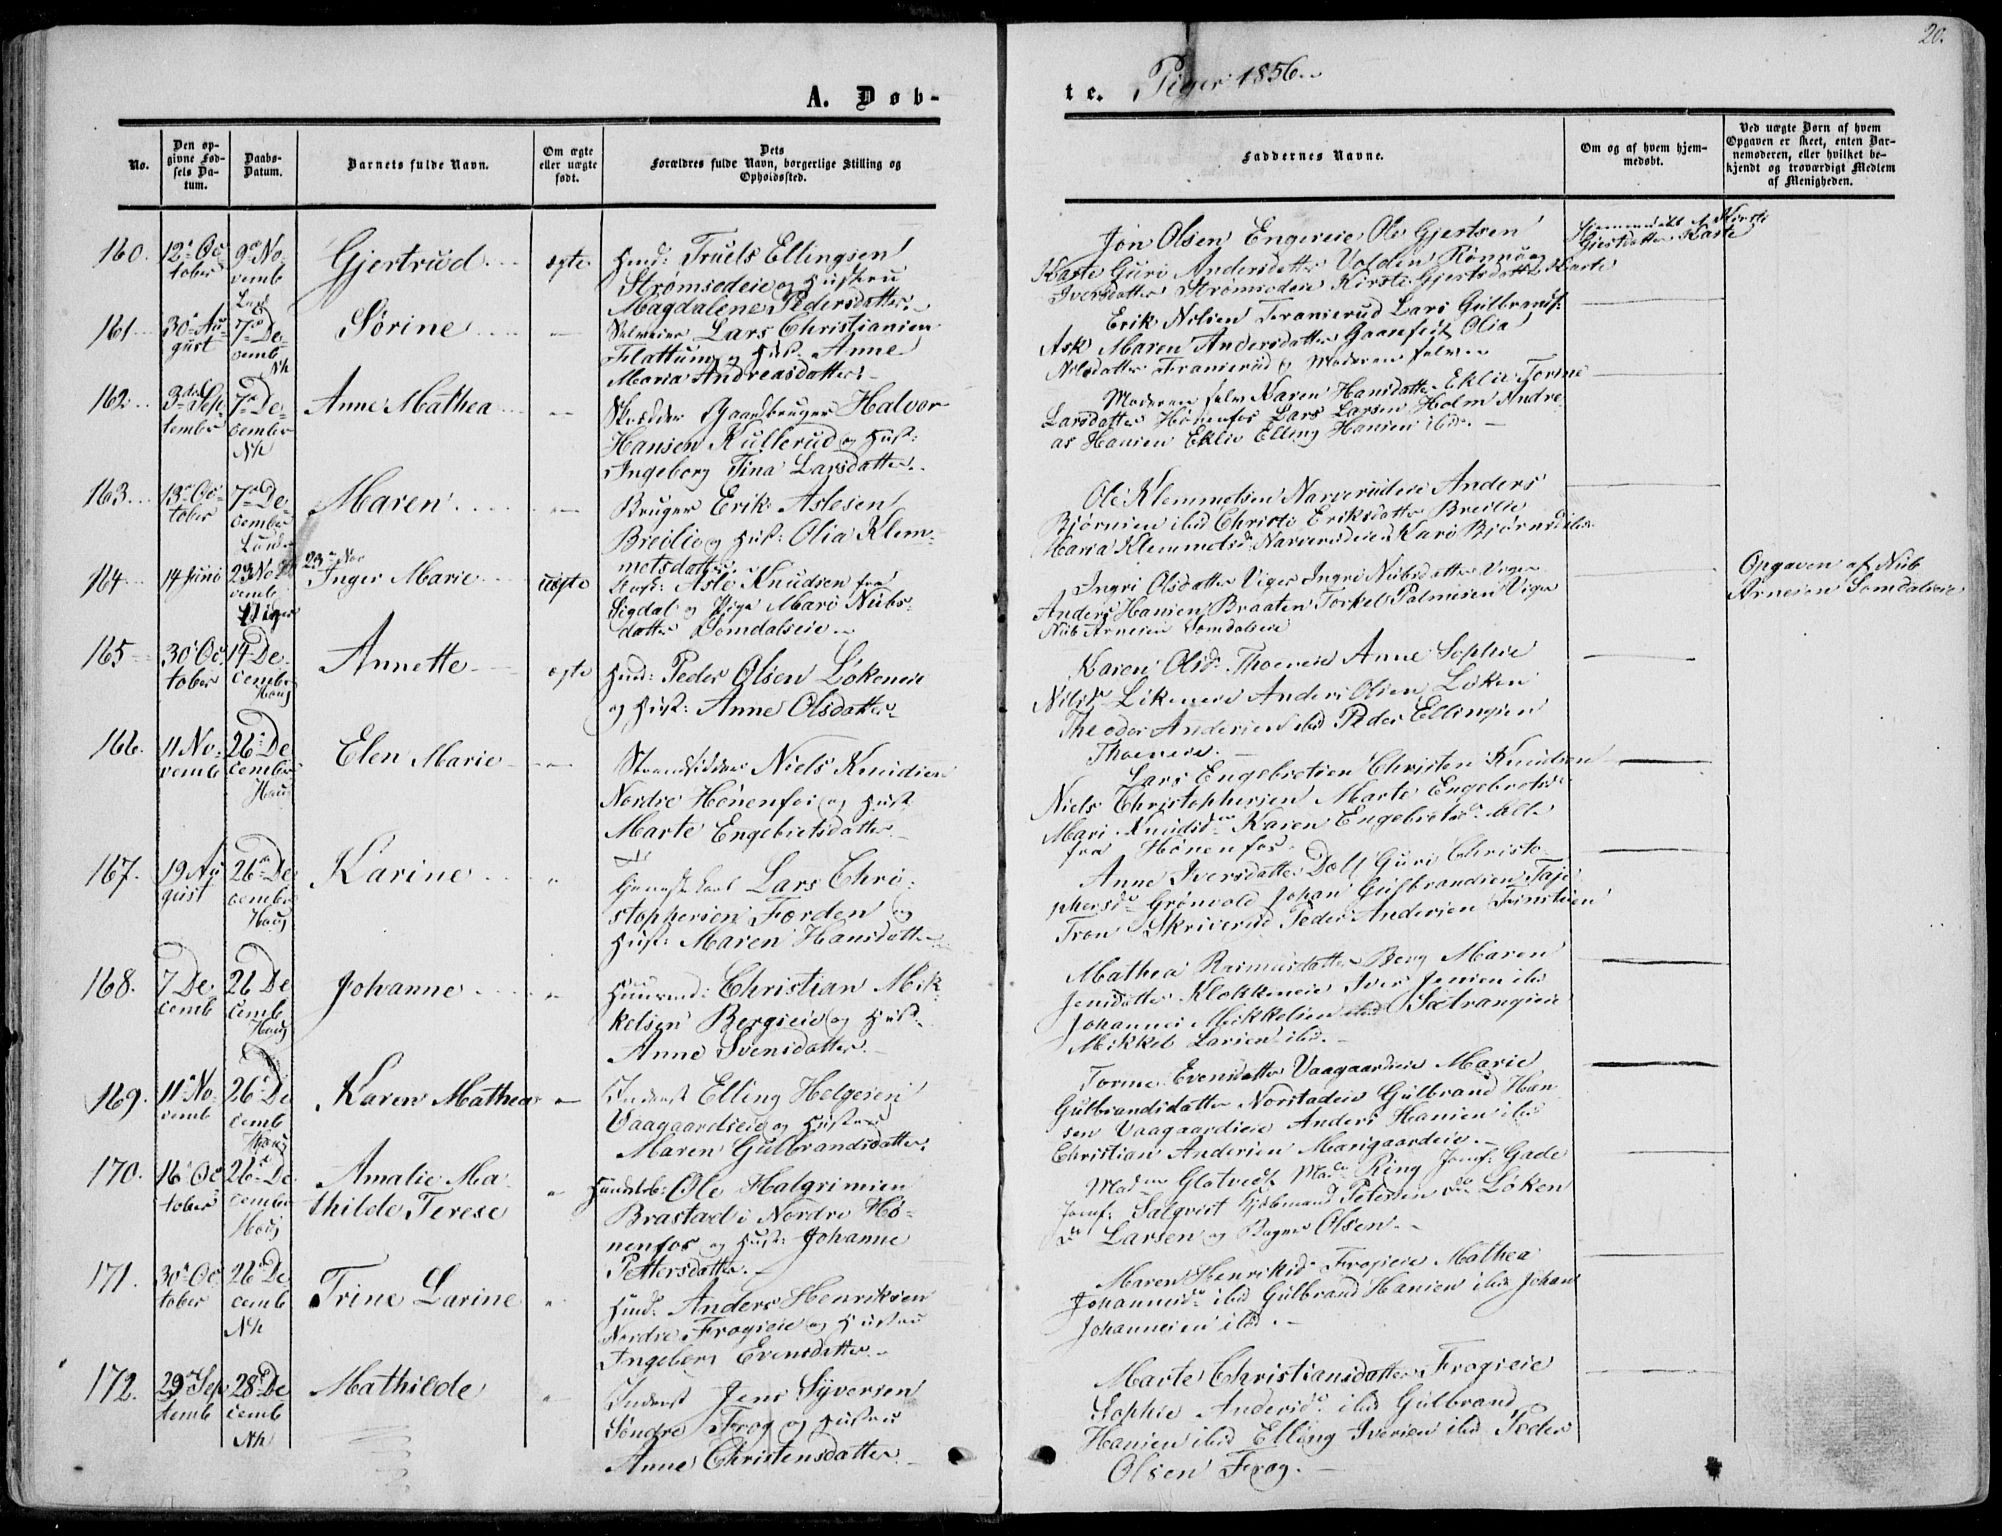 20.
A. Døb-
te. Piger 1856.
No.
Den op-
givne Fød-
sels Da-
tum.
Daabs-
Datum.
Barnets fulde Navn.
Om ægte
eller uægte
født.
Dets
Forældres fulde Navn, borgerlige Stilling og
Opholdssted.
Faddernes Navne.
Om og af hvem hjem-
medøbt.
Ved uægte Børn af hvem
Opgaven er skeet, enten Bar-
nemoderen, eller hvilket be-
kjendt og troværdigt Medlem
af Menigheden.
160.
12 Oc
tober
9 No
vemb
Gjertrud
ægte
Huusmd: Truels Ellingsen
Strømsoeie og Hustru
Magdalene Pedersdatter.
Jon Olsen Engereie Ole Gjertsen
Karte Guri Andersdatter Volden Rønnaug
Iversdatter Strømsoeie Kirsti Gjertsdatter Karte
Hjemmedøbt af Kirsti
Gjertsdatter Karte
161
30 Au
gust
7 De
cemb
Nh
Sørine
Lars Christiansen
Flattum og Hust: Anne
Maria Andreasdatter
Erik Nilsen Tranierud Lars Gulbrands.
Ask Maren Andersdatter Olia
Nilsdatter Tranierud og Moderen selv
162
3 Sep
tember
7 De
cember
Nh
Anne Mathea
Skrædder Gaardbruger Halvor
Hansen Kullerud og Hust:
Ingeborg Tina Larsdatter.
Moderen selv Karen Hansdatter Eklie Torine
Larsdatter Hønefos Lars Larsen Holm Andre
as Hansen Eklie Elling Hansen ibid.
163
13 Oc
tober
7 De
cember
Maren
Bruger Erik Aslesen
Breilie og Hust: Olia Klem
metsdatter
Ole Klemmetsen Narverudeie Anders
Bjørnsen ibid Christi Eriksdatter Breilie
Maria Klemmetsd Narverudeie Kari Bjørnsd ibid
164
14 Juni
23 No
vemb
Viger
23 Nov
Inger Marie
uægte
Asle Knudsen fra
Sigdal og Pige Mari Nubs-
datter Somdalseie
Ingri Olsdatter Viger Ingri Nubsdatter Viger
Anders Hansen Braaten Torkel Palmesen Viger
Nub Arnesen Somdalseie
Opgaven af Nub
Arnesen Somdalseie
165
30 Oc
tober
14 De
cember
Haug
Annette
ægte
Huusmd: Peder Olsen Løkeneie
og Hust: Anne Olsdatter
Karen Olsd. Thoeneie Anne Sophie
Nilsd Løkeneie Anders Olsen Løken
Theodor Andersen ibid Peder Ellingsen
Thoeneie.
166.
11 No
vemb
26 De
cember
Haug
Elen Marie
Strandsidder Niels Knudsen
Nordre Hønenfos og Hust
Marte Engebretsdatter
Lars Engebretsen Christen Knudsen
Niels Christophersen Marte Engebretsd
Mari Knudsd Karen Engebretsd. alle
fra Hønenfos.
167.
19 Au
gust
26 De
cember
Haug
Karine
Lars Chri-
stophersen Forden og
Hust: Maren Hansdatter
Anne Iversdatter Guri Christo-
phersd Grønvold Johan Gulbrandsen
Tron Skriverud Peder Andersen
168.
7 De
cemb
26 De
cemb
Haug
Johanne
Huusmd: Christian Mik
kelsen Bergseie og Hust
Anne Svensdatter
Mathea Rasmusdatter Berg Maren
Jensdatter Klokkeneie Iver Jensen ibid
Johannes Mikkelsen Sætrangseie
Mikkel Larsen ibid.
169.
11 No
vemb
26 De
cemb
Haug
Karen Mathea
Inderst Elling Helgesen
Vaagaardseie og Hustru
Maren Gulbrandsdatter.
Torine Evensdatter Vaagaardseie Marie
Gulbrandsdatter Norstadeie Gulbrand Han
sen Vaagaardseie Anders Hansen ibid
Christian Andersen Marigaardeie.
170.
16 Oc
tober
26 De
cember
Haug
Amalie Ma-
thilde Terese
Ole Halgrimsen
Brastad i Nordre Hø-
nenfos og Hust: Johanne
Pettersdatter.
Madm Glatved Madm Ring Jomf: Gade
Jomf: Salqvist Kjøbmand Petersen do Løken
do Larsen og Bager Olsen.
171.
30 Oc
tober
26 De
cemb
Nh
Trine Larine
Huusmd: Anders Henriksen
Nordre Frogseie og Hustru
Ingeborg Evensdatter
Maren Henriksd Frogseie Mathea
Johannesd ibid Gulbrand Hansen ibid Johan
Johannesen ibid.
172.
29 Sep
temb
28 De
cemb
Nh
Mathilde
Inderst Jens Syversen
Søndre Frog og Hustru
Anne Christensdatter
Marte Christiansdatter Frogseie
Sophie Andersd ibid Gulbrand
Hansen ibid Elling Iversen ibid Peder
Olsen Frog.